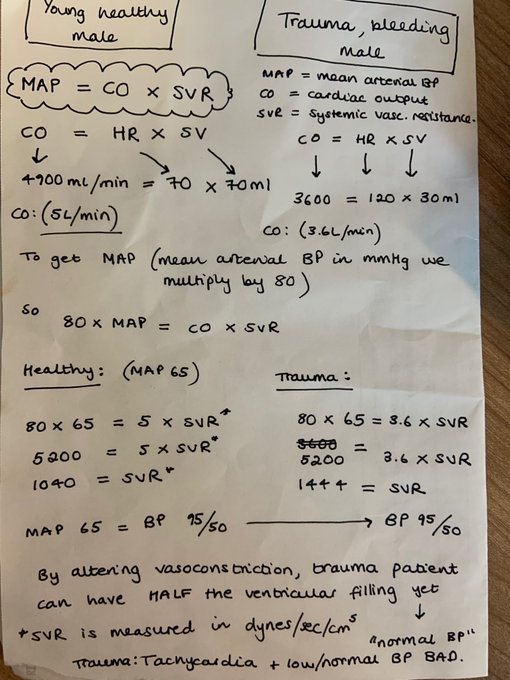 Young healthy
male
Trauma, bleeding
male
MAP = CO x SVR
MAP = mean arterial BP
CO = cardiac output
SVR = systemic vasc. resistance.
CO = HR x SV
4900 ml/min = 70 x 70ml
CO: (5L/min)
CO = HR x SV
3600 = 120 x 30ml
CO: (3.6L/min)
To get MAP (mean arterial BP in mmHg we
multiply by 80)
So
80 x MAP = CO x SVR
Healthy: (MAP 65)
80 x 65 = 5 x SVR*
5200 = 5 x SVR*
1040 = SVR*
Trauma:
80 x 65 = 3.6 x SVR
3600 =
5200 3.6 x SVR
1444 = SVR
MAP 65 = BP 95/50 → BP 95/50
By altering vasoconstriction, trauma patient
can have HALF the ventricular filling yet
↓
"normal BP"
*SVR is measured in dynes/sec/cm5
Trauma: Tachycardia + low/normal BP BAD.